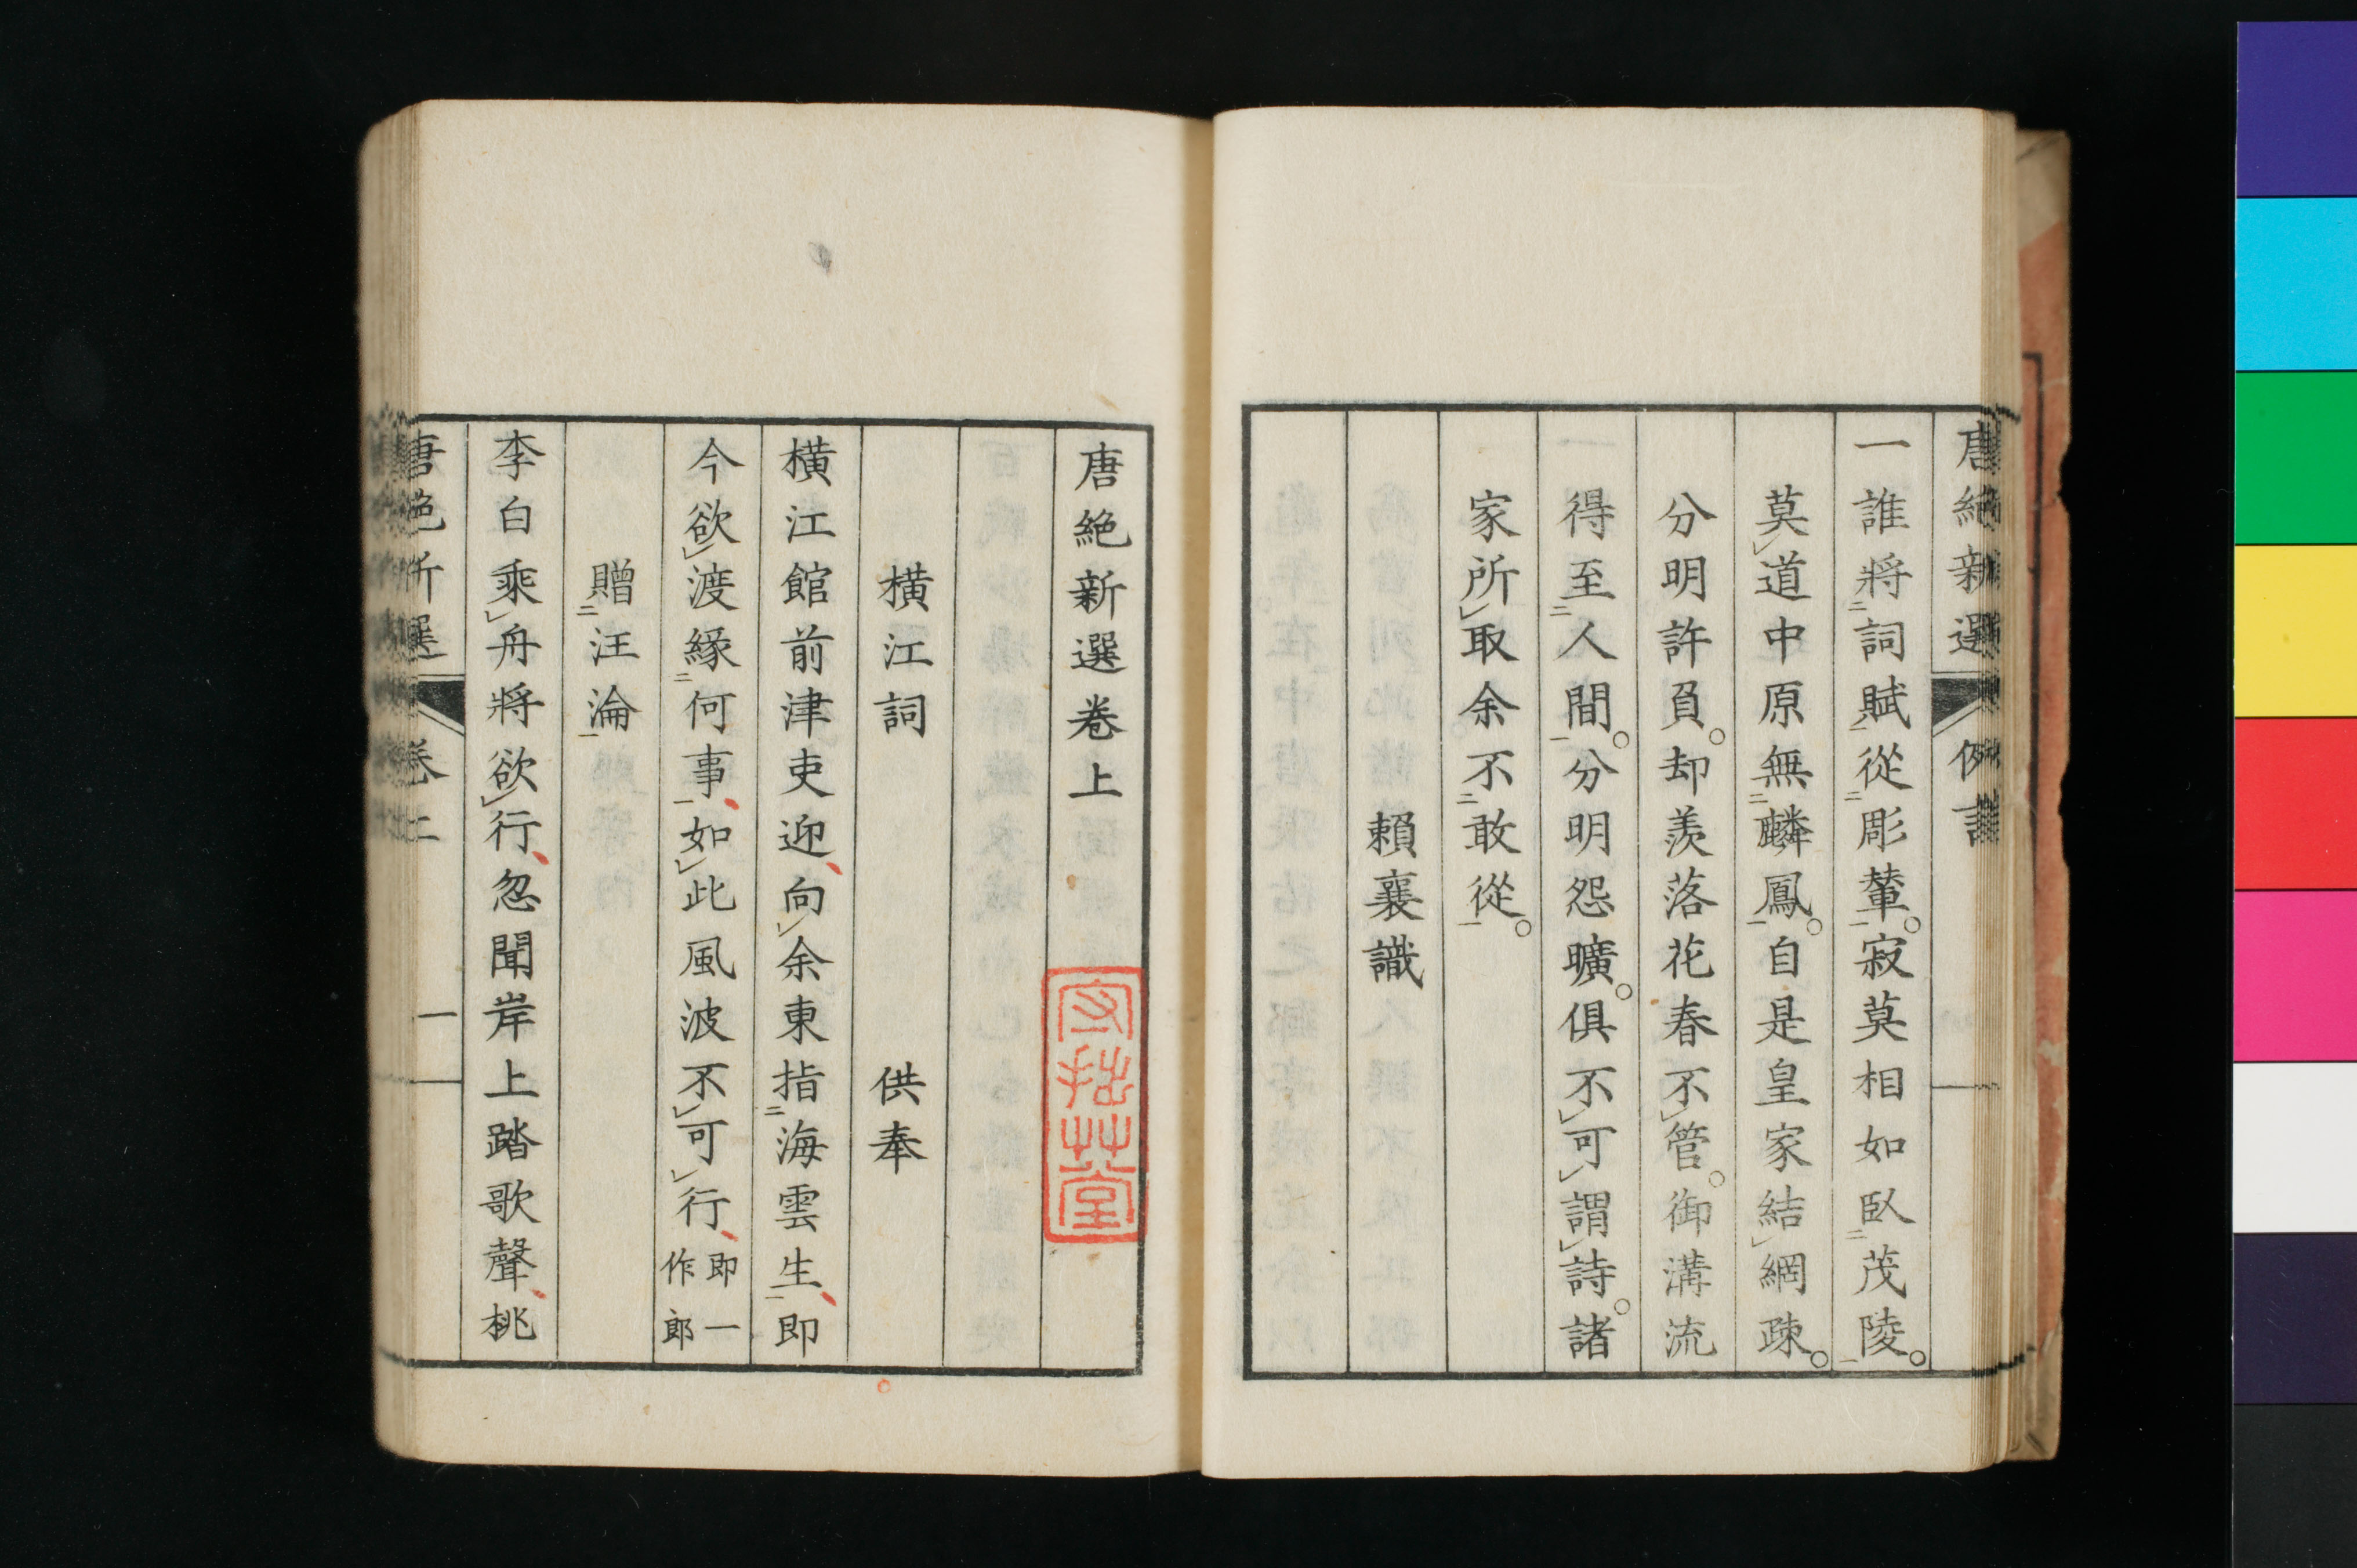 唐絕新選 例言
一誰將詞賦從彫輦。寂莫相如臥茂陵。
莫道中原無麟鳳。自是皇家結網疎。
分明許負。却羨落花春不管。御溝流
得至人間。分明怨曠。俱不可謂詩。諸
家所取余不敢從。
賴襄識
唐絕新選卷上
横江詞 供奉
横江館前津吏迎向余東指海雲生即
今欲渡緣何事如此風波不可行即一作郎
贈汪淪
李白乘舟將欲行忽聞岸上踏歌聲桃
唐絕新選 卷上 一